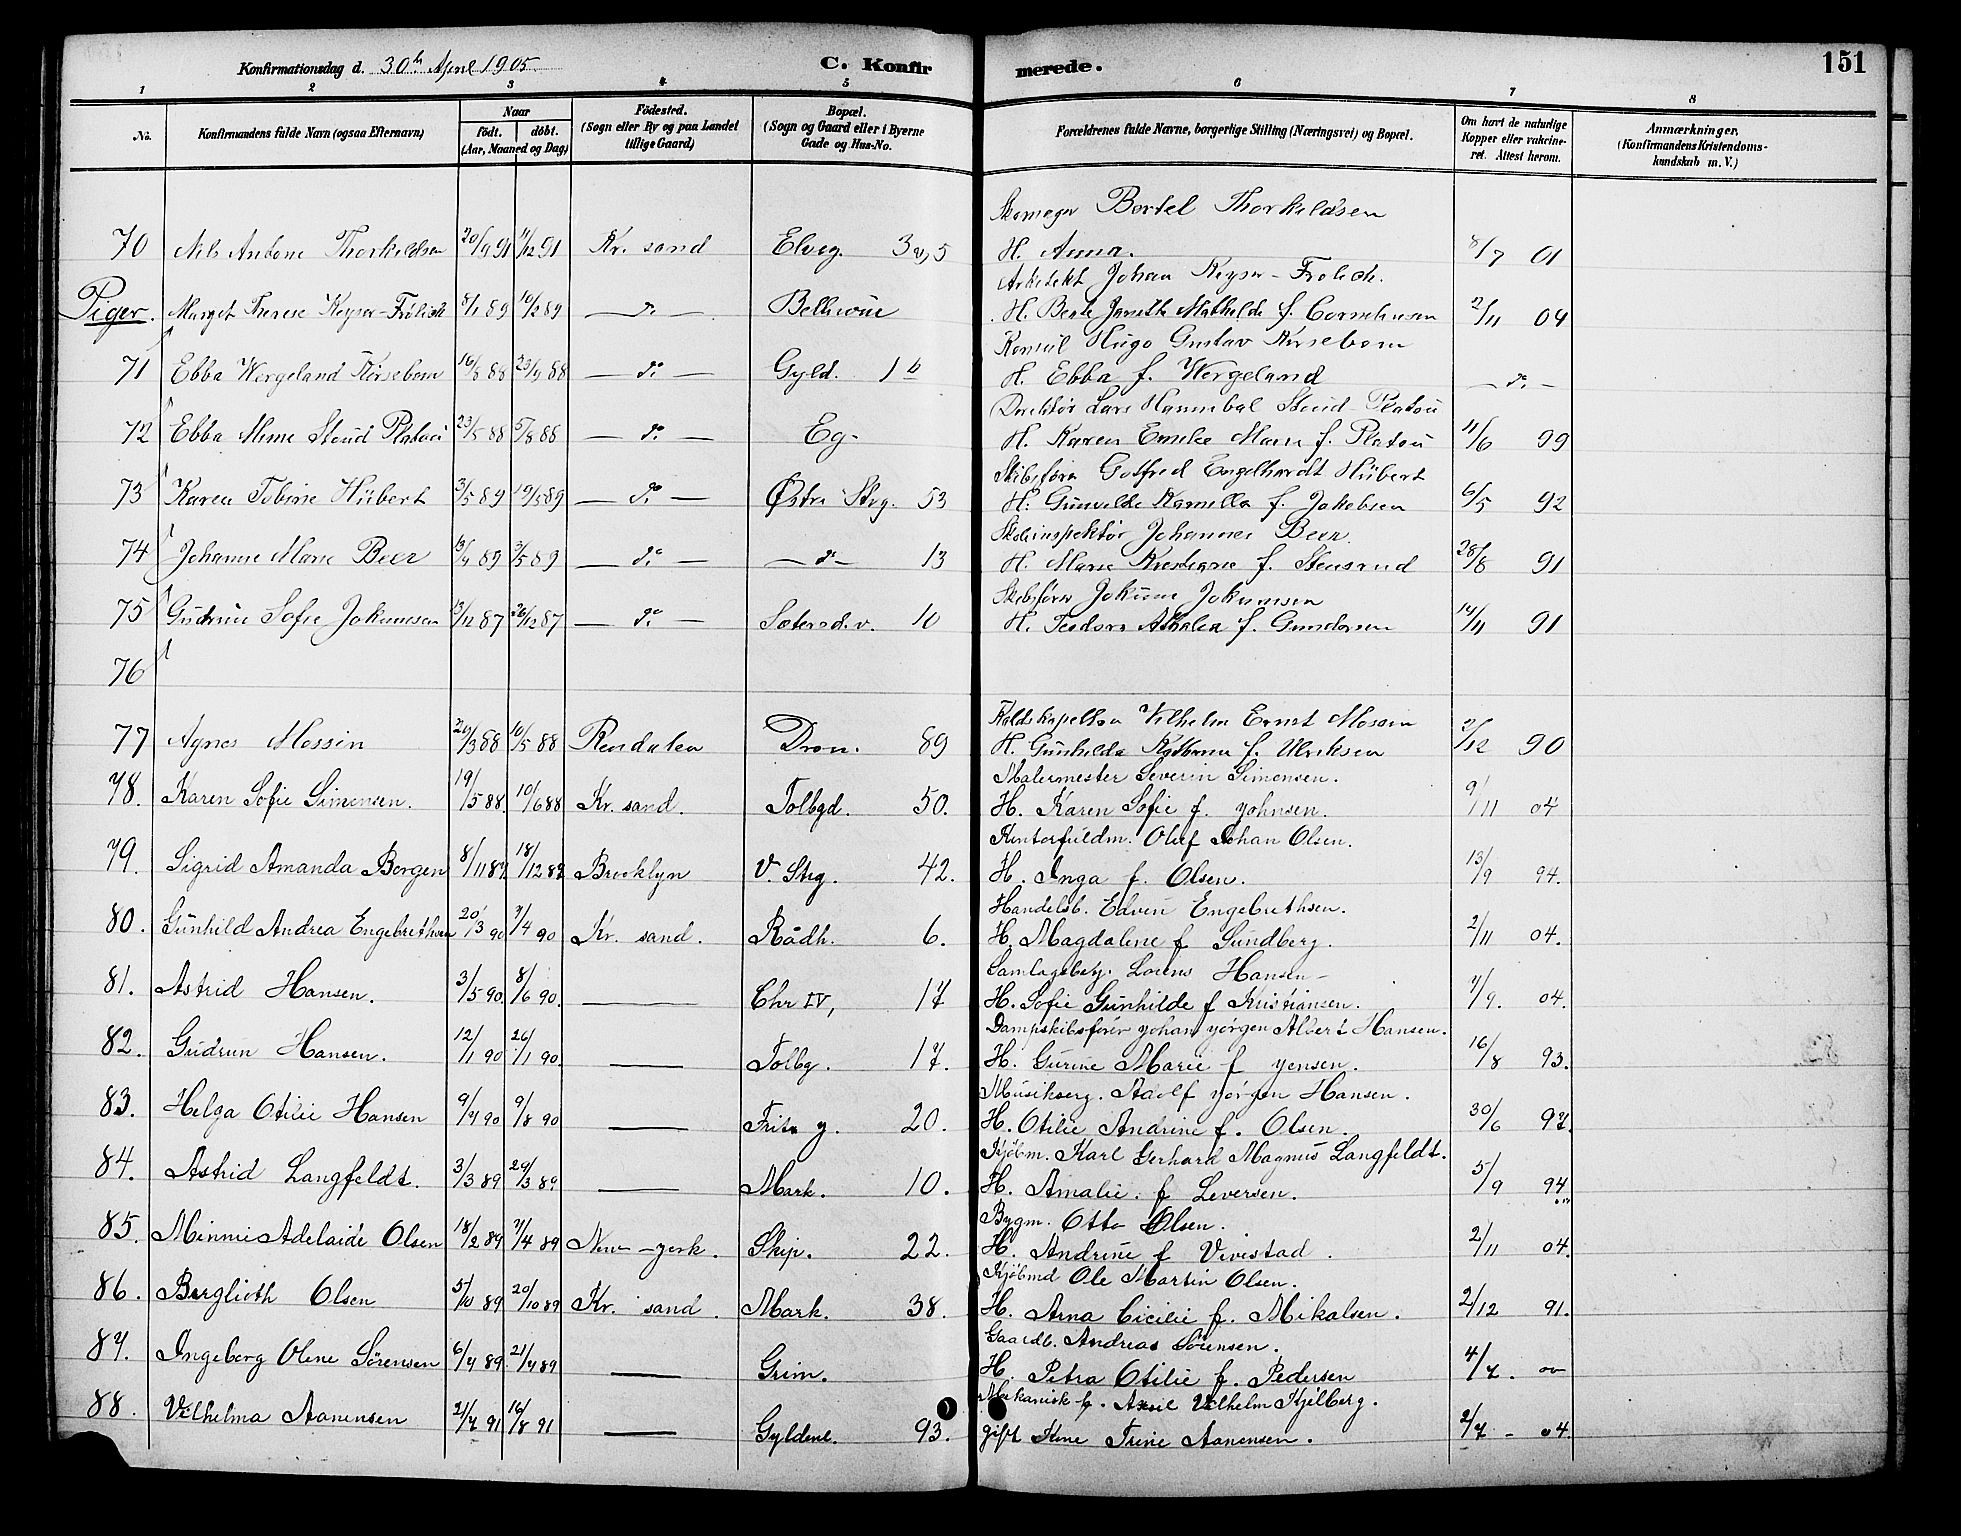 Konfirmationsdag d. 30te April 1905. C. Konfirmerede. 151
1 2 3 4 5 6 7 8
No. Konfirmandens fulde Navn (ogsaa Efternavn) Naar födt. döbt. (Aar, Maaned og Dag) Födested. (Sogn eller By og paa Landet tillige Gaard) Bopæl. (Sogn og Gaard eller i Byerne Gade og Hus-No. Forældrenes fulde Navne, borgerlige Stilling (Næringsvei) og Bopæl. Om havt de naturlige Kopper eller vakcineret. Attest herom. Anmærkninger, (Konfirmandens Kristendomskundskab m. V.)
Skomager Bertel Thorkildsen
70 Nils Antone Thorkildsen 20/9 91 /12 91 Kr. sand Elveg. 3 H. Anna. 8/7 01
Arkitekt Johan Keyser-Frolich.
Piger. Margit Therese Keyser-Frölich 8/1 89 10/2 89 do Bellevue H. Berte Janette Mathilde f. Corneliusen 2/11 04
Konsul Hugo Gustav Kirsebom
71 Ebba Wergeland Kirsebom 16/8 88 23/9 88 do Gyld. 1 b H. Ebba f. Wergeland do
Direktör Lars Hannibal Stoud-Platou
72 Ebba Mime Stoud Platou 23/5 88 5/8 88 do Eg. H. Karen Emilie Marie f. Platou 11/6 99
Skibsförer Gotfred Engelhardt Hübert
73 Karen Tobine Hübert 3/5 89 19/5 89 do Østre Stvg. 53 H. Gunvelde Kamilla f. Jakobsen 6/5 92
Skoleinspektör Johannes Beer.
74 Johanne Marie Beer 13/4 89 3/5 89 do do 13 H. Marie Kristiane f. Stensrud 28/8 91
Skibsförer Jokum Jokumsen
75 Gudrun Sofie Jokumsen 13/12 87 26/12 87 do Setersd.v. 10 H. Teodora Athalea f. Gundersen 14/11 91
76
Kaldskapellan Vilhelm Ernst Mossin
77 Agnes Mossin 20/3 88 10/5 88 Rendalen Dron. 89 H. Gunhilda Katharina f. Ulriksen 2/12 90
Malermester Severin Simonsen.
78. Karen Sofie Simonsen. 19/5 88. 10/6 88 Kr. sand. Tolbgd. 50. H. Karen Sofie f. Johnsen. 9/11 04
Kontorfuldm. Oluf Johan Olsen.
79. Sigrid Amanda Borgen 8/11 87. 18/12 87 Brooklyn V. Stvg. 42. H. Inga f. Olsen. 13/9 94.
Handelsb. Edvin Engebrethsen.
80. Gunhild Andrea Engebrethsen 20/3 90 7/4 90 Kr. sand. Rådh. 6. H. Magdalene f Sundberg. 2/11 04.
Samlagsbetj. Lorens Hansen
81. Astrid Hansen. 3/5 90. 8/6 90. — Chr IV, 17 H. Sofie Gunhilde f Kristiansen. 7/9. 04.
Dampskibsförer Johan Jörgen Albert Hansen.
82. Gudrun Hansen. 12/1 90 26/1 90. — Tolbg. 17. H. Gurine Marie f Jensen. 16/8 93.
Musikserg. Adolf Jörgen Hansen.
83. Helga Otilie Hansen 9/7 90 9/8 90 — Frits g. 20. H. Otilie Andrine f. Olsen. 30/6 97.
Kjöbm. Karl Gerhard Magnus Langfeldt.
84. Astrid Langfeldt. 3/3 89 29/3 89 — Mark. 10. H. Amalie f Leversen. 5/9 94
Bygm. Otto Olsen.
85. Minnie Adelaide Olsen 18/2 89 7/4 89 New-york. Skip. 22. H. Andrine f Vivestad. 2/11 04.
Kjöbmd Ole Martin Olsen.
86. Berglioth Olsen 5/10 89 20/10 89 Kr. sand. Mark. 38. H. Arna Cicilie f. Mikalsen. 2/12 91.
Gaardb. Andreas Sörensen.
87. Ingeborg Olene Sörensen 6/7 89 21/7 89 — Grim. H. Petra Otilie f. Pedersen 4/7. 00
Mekanisk-b. Axel Vilhelm Kjelberg.
88. Vilhelma Aanensen 2/7 91 16/8 91 — Gyldenl. 93. gift Kine Trine Aanensen. 2/7 - 04.